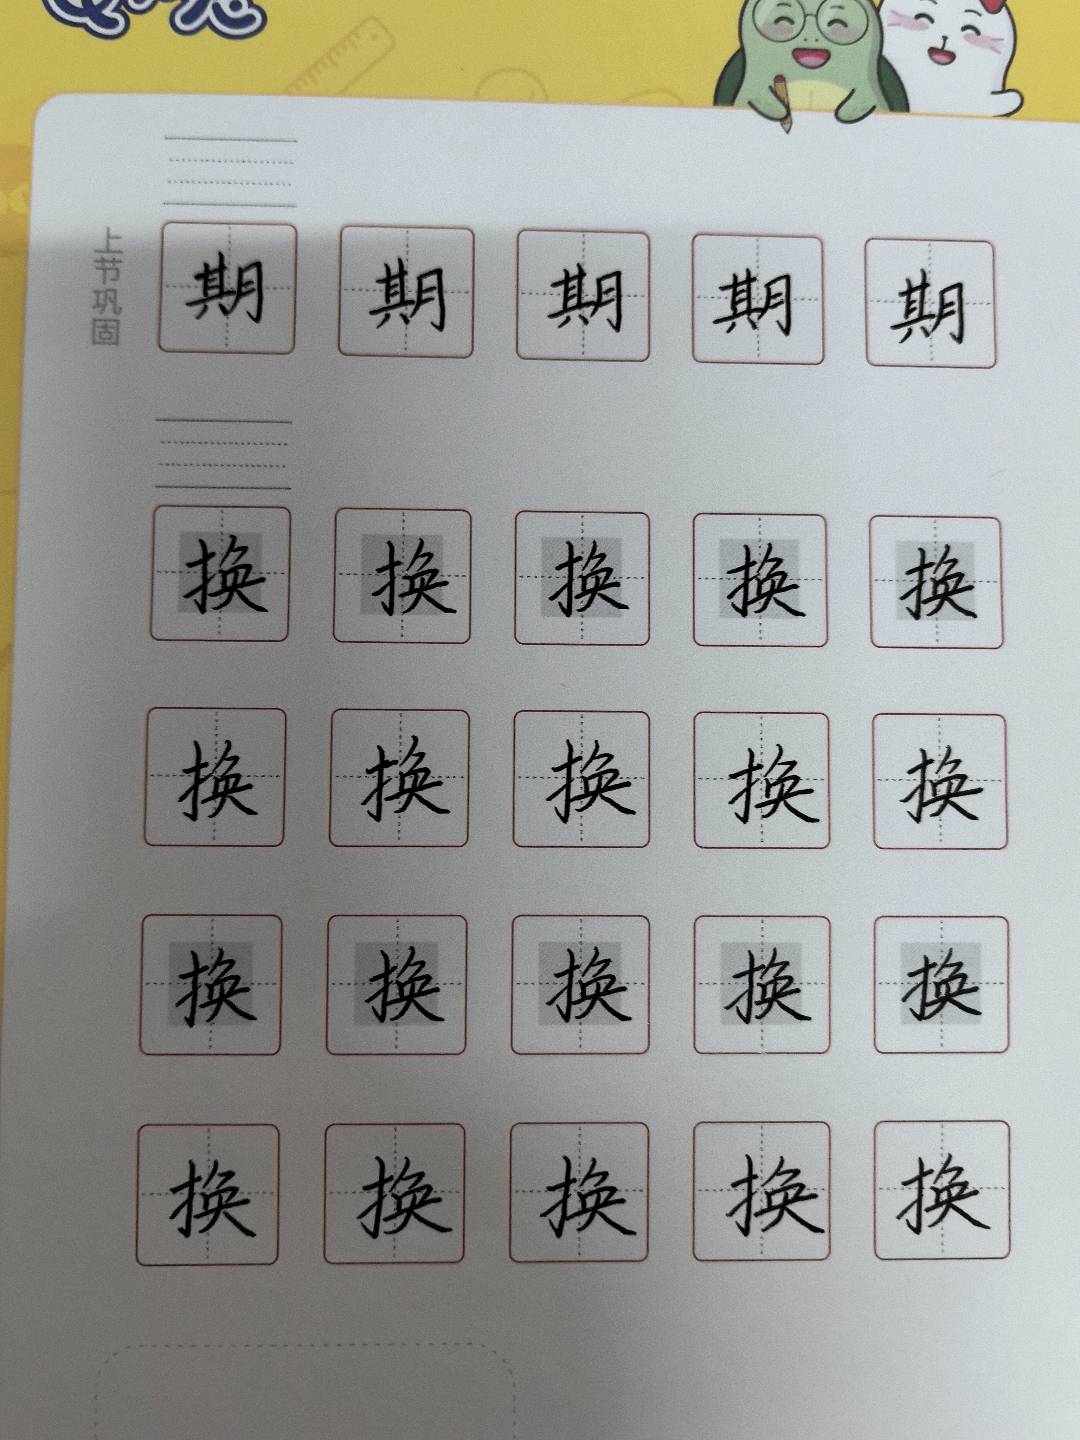 上节巩固
期 期 期 期 期
换 换 换 换 换
换 换 换 换 换
换 换 换 换 换
换 换 换 换 换